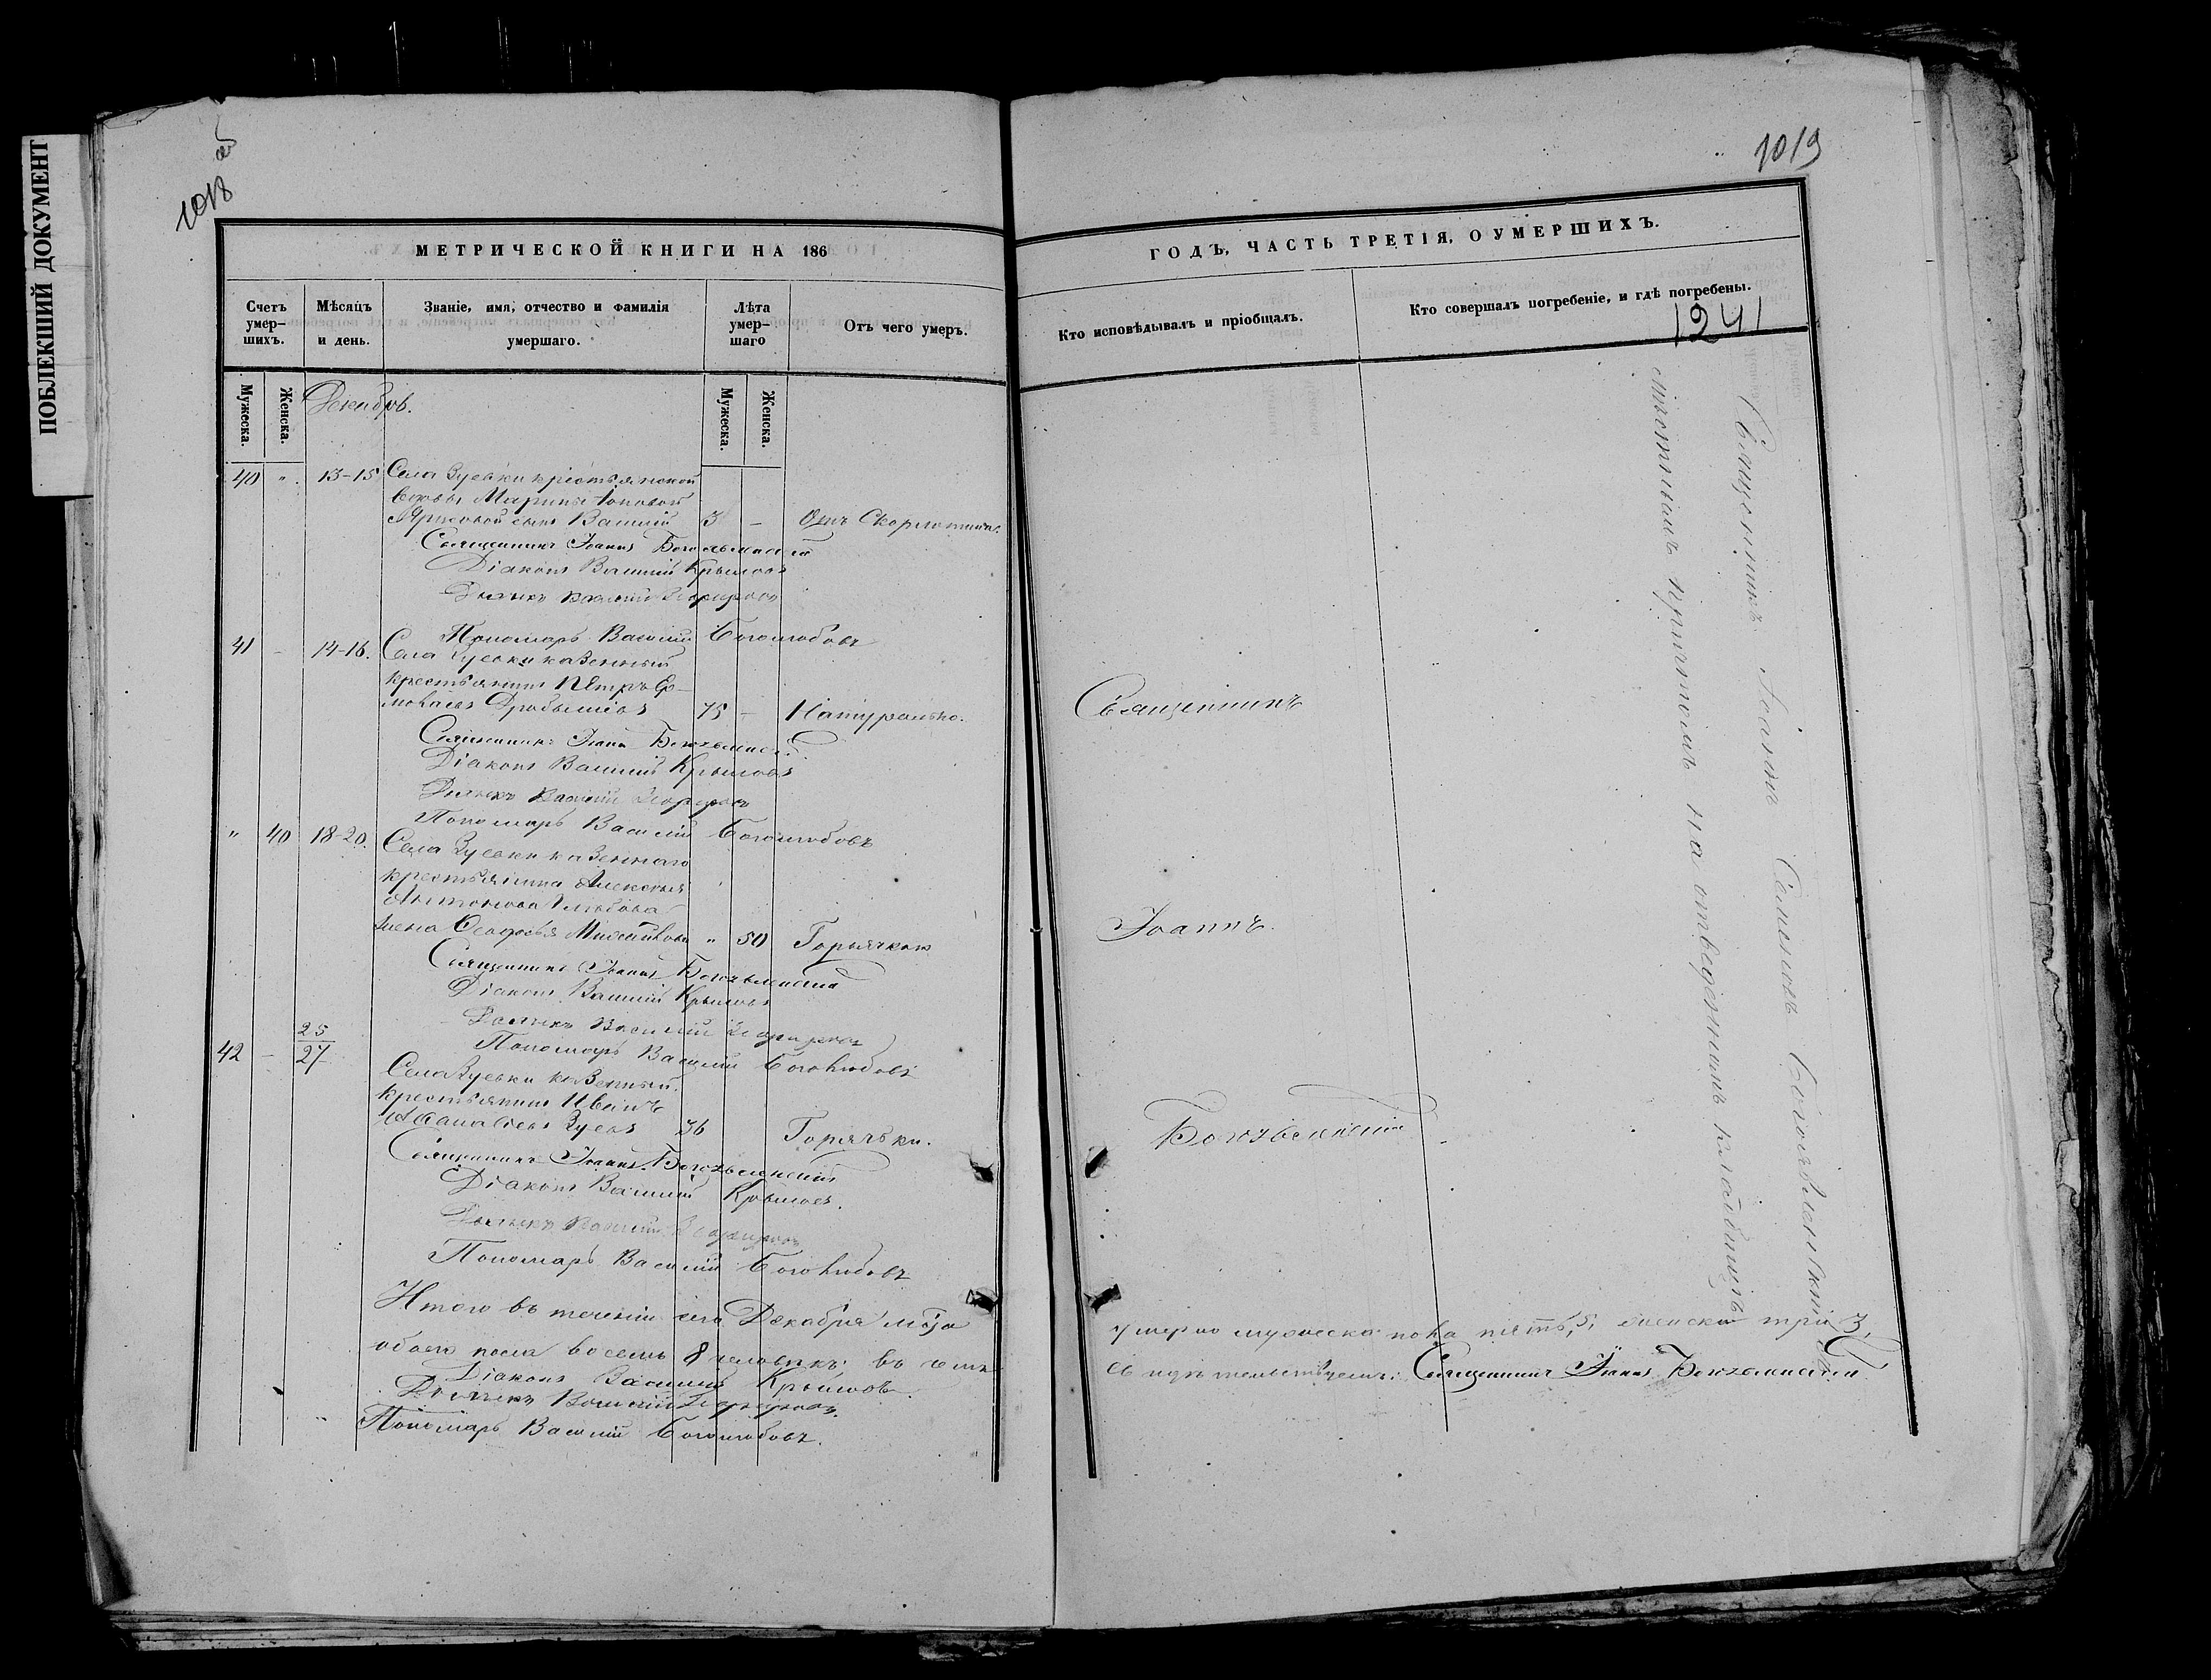 ПОБЛЕКШИЙ ДОКУМЕНТ
1018 об
МЕТРИЧЕСКОЙ КНИГИ НА 186
Счетъ умер-
шихъ.
Мѣсяцъ
и день.
Званіе, имя, отчество и фамилія
умершаго.
Лѣта
умер-
шаго
Отъ чего умеръ.
Мужеска.
Женска.
Мужеска.
Женска.
Декабрь.
40 " 13-15 Села Зуевки крестьянской
вдовы Марины
сынъ Василій 3 — Отъ Скорлатины.
Священникъ Іоаннъ Богоявленскій
Діаконъ Василій Крыловъ
Дьячекъ Василій
Пономарь Василій Боголюбовъ
41 - 14-16. Села Зуевки казенный
крестьянинъ Петръ
75 - Натурально.
Священникъ Іоаннъ Богоявленскій
Діаконъ Василій Крыловъ
Дьячекъ Василій
Пономарь Василій Боголюбовъ
" 40 18-20. Села Зуевки казеннаго
крестьянина Алексѣя
Антонова
жена Ѳеодосья Михайлова " 50 Горячкою
Священникъ Іоаннъ Богоявленскій
Діаконъ Василій Крыловъ
Дьячекъ Василій
Пономарь Василій Боголюбовъ
42 - 25/27 Села Зуевки казенный
крестьянинъ Иванъ
Аѳанасьевъ Зуевъ 36 Горячки.
Священникъ Іоаннъ Богоявленскій
Діаконъ Василій Крыловъ.
Дьячекъ Василій
Пономарь Василій Боголюбовъ
Итого въ теченіи сего Декабря м-ца
обоего пола восемь 8 человѣкъ; въ чемъ
Діаконъ Василій Крыловъ.
Дьячекъ Василій
Пономарь Василій Боголюбовъ.
1019
ГОДЪ, ЧАСТЬ ТРЕТІЯ, О УМЕРШИХЪ.
Кто исповѣдывалъ и пріобщалъ.
Кто совершалъ погребеніе, и гдѣ погребены.
1241
Священникъ
Іоаннъ
Богоявленскій
Священникъ Іоаннъ Богоявленскій съ
мѣстнымъ причтомъ на отведенномъ кладбищѣ
умерло мужеска пола пять, 5, женска три 3,
свидѣтельствуемъ: Священникъ Іоаннъ Богоявленскій